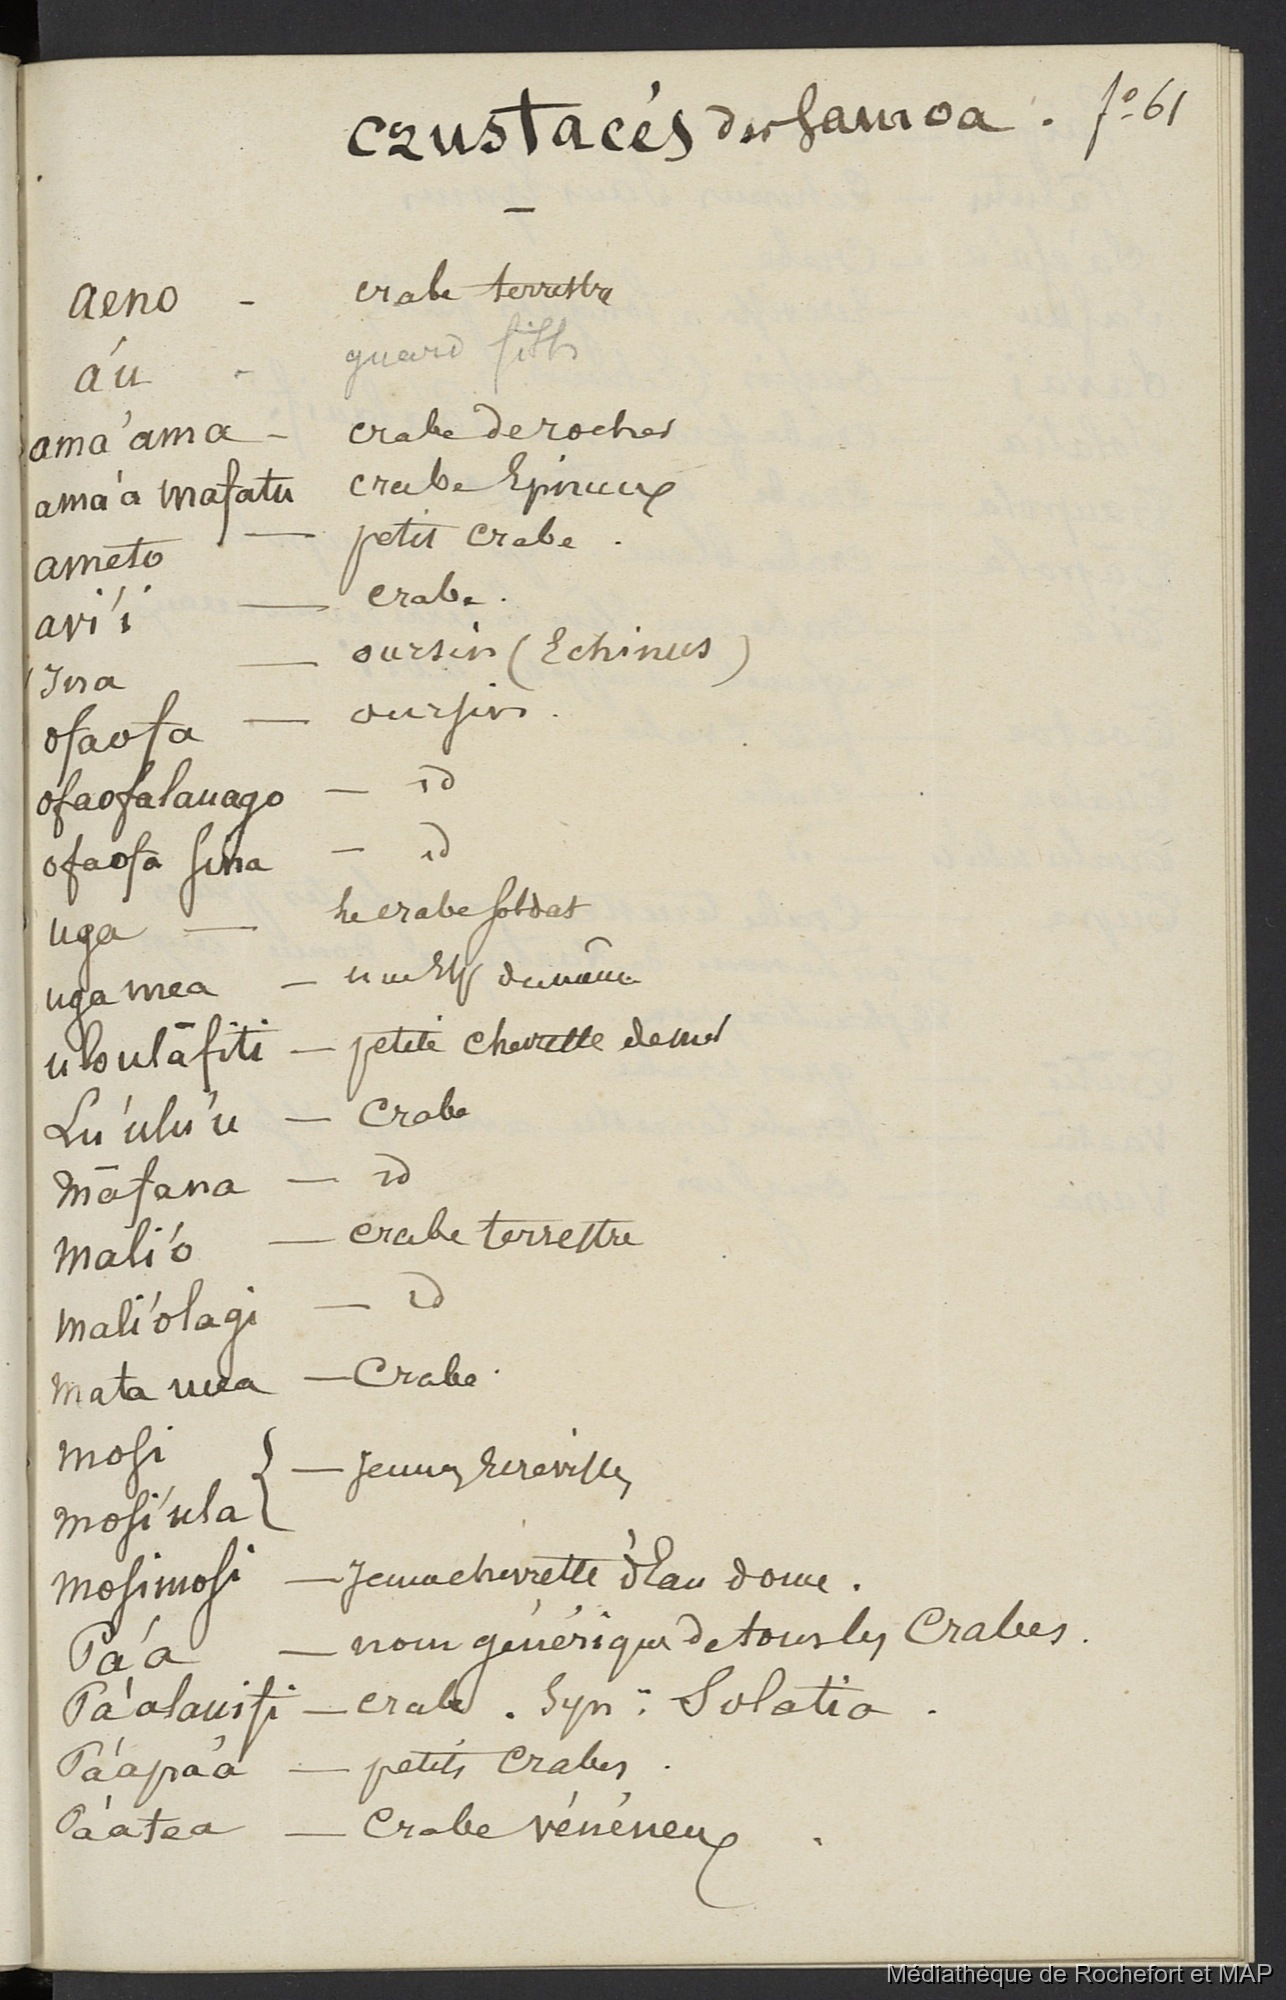 Crustacés des Samoa. fº 61
aeno - crabe terrestre
áu - guard fish
ama'ama - crabe de rocher
ama'a mafatu crabe Epineux
ameto — petit crabe.
avi'i — crabe.
Ina — oursin (Echinus)
ofaofa — oursin.
ofaofalauago — id
ofaofa sina — id
uga — le crabe soldat
uga mea — une Esp du même
uloulāfiti — petite chevrette de mer
Lu'ulu'u — Crabe
māfana — id
mali'o — crabe terrestre
mali'olagi — id
mata mea — Crabe.
mosi
— jeunes Ecrevisses
mosi'ula
mosimosi — jeune chevrette d'Eau douce.
Pa'a — nom générique de tous les Crabes.
Pa'alauisi — crabe. Syn: Solatia.
Pa'apa'a — petits Crabes.
Pa'atea — Crabe vénéneux.
Médiathèque de Rochefort et MAP